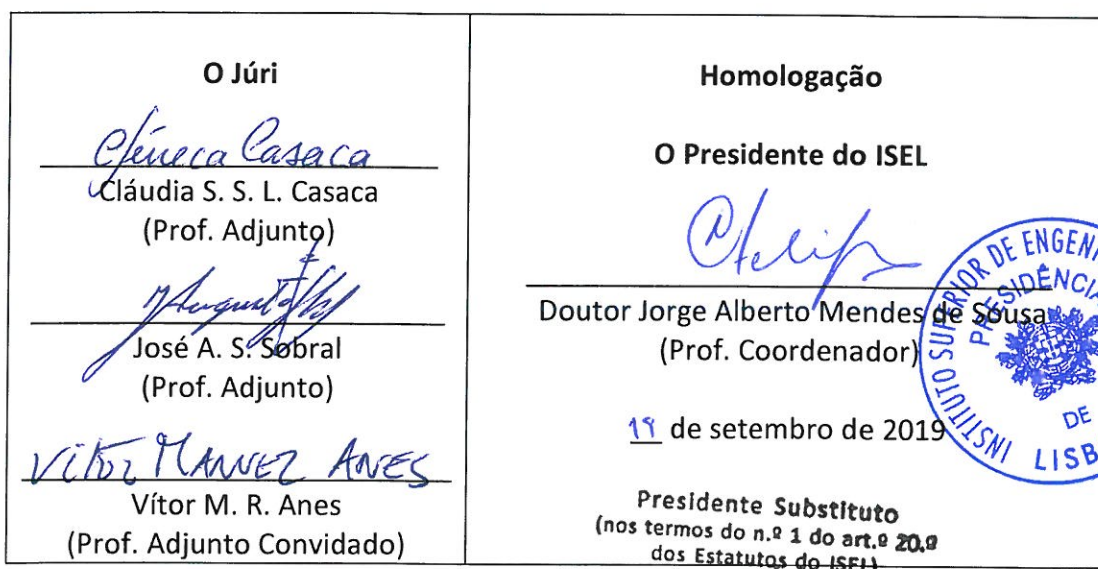 O Júri
Casaca
Cláudia S. S. L. Casaca
(Prof. Adjunto)
José A. S. Sobral
(Prof. Adjunto)
VÍTOR MANUEL ANES
Vítor M. R. Anes
(Prof. Adjunto Convidado)
Homologação
O Presidente do ISEL
Doutor Jorge Alberto Mendes de Sousa
(Prof. Coordenador)
de setembro de 2019
Presidente Substituto
(nos termos do n.º 1 do art.º 20.º
dos Estatutos do ISEL)
INSTITUTO SUPERIOR DE ENGENH
PRESIDÊNCIA
DE
LISB